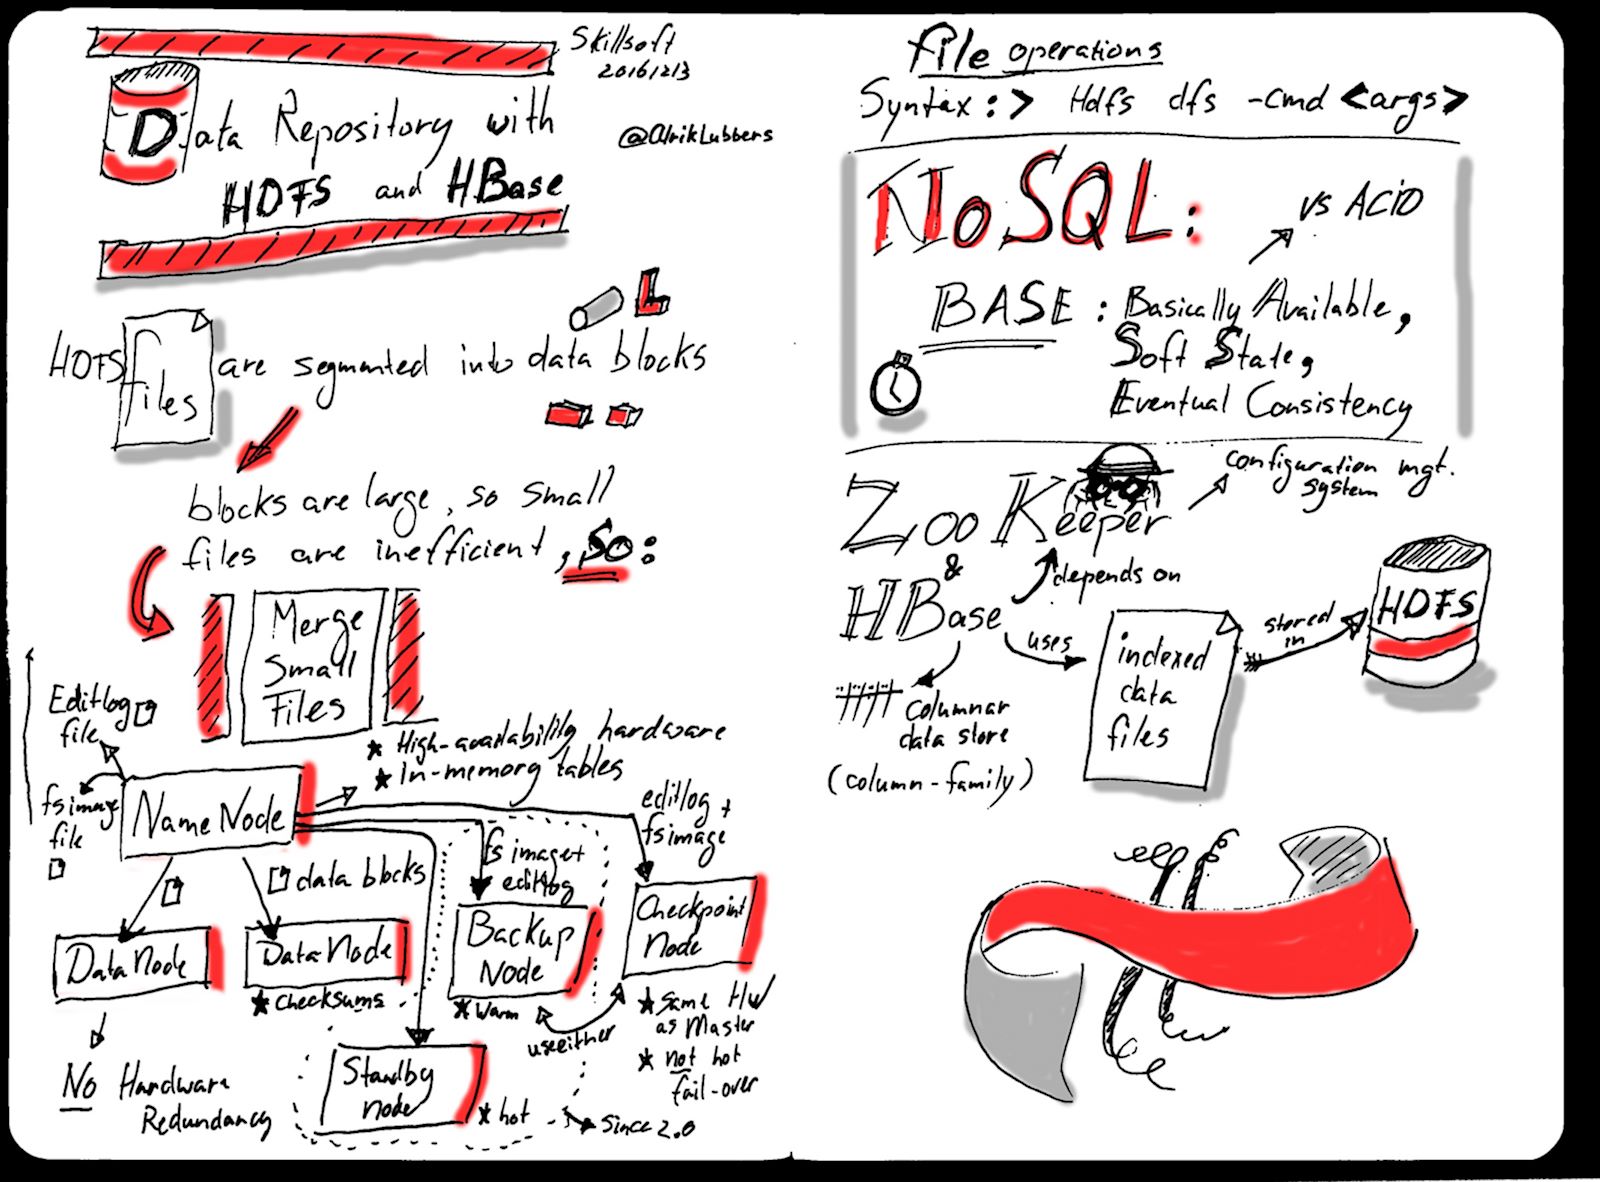 Skillsoft
20161213
Data Repository with
@AlrikLubbers
HDFS and HBase
HDFS files are segmented into data blocks
blocks are large, so small
files are inefficient, so:
Merge
Small
Files
Editlog
file
fsimage
file
NameNode
★ High-availability hardware
★ In-memory tables
editlog +
fsimage
data blocks
fsimage+
editlog
DataNode
DataNode
★ checksums
Backup
Node
★ Warm
Checkpoint
Node
use either
★ Same HW
as Master
★ not hot
fail-over
No Hardware
Redundancy
Standby
node
★ hot
Since 2.0
File operations
Syntax:> Hdfs dfs -cmd <args>
NoSQL:
vs ACID
BASE: Basically Available,
Soft State,
Eventual Consistency
ZooKeeper
configuration mgt.
system
&
HBase
depends on
uses
indexed
data
files
stored
in
HDFS
columnar
data store
(column-family)